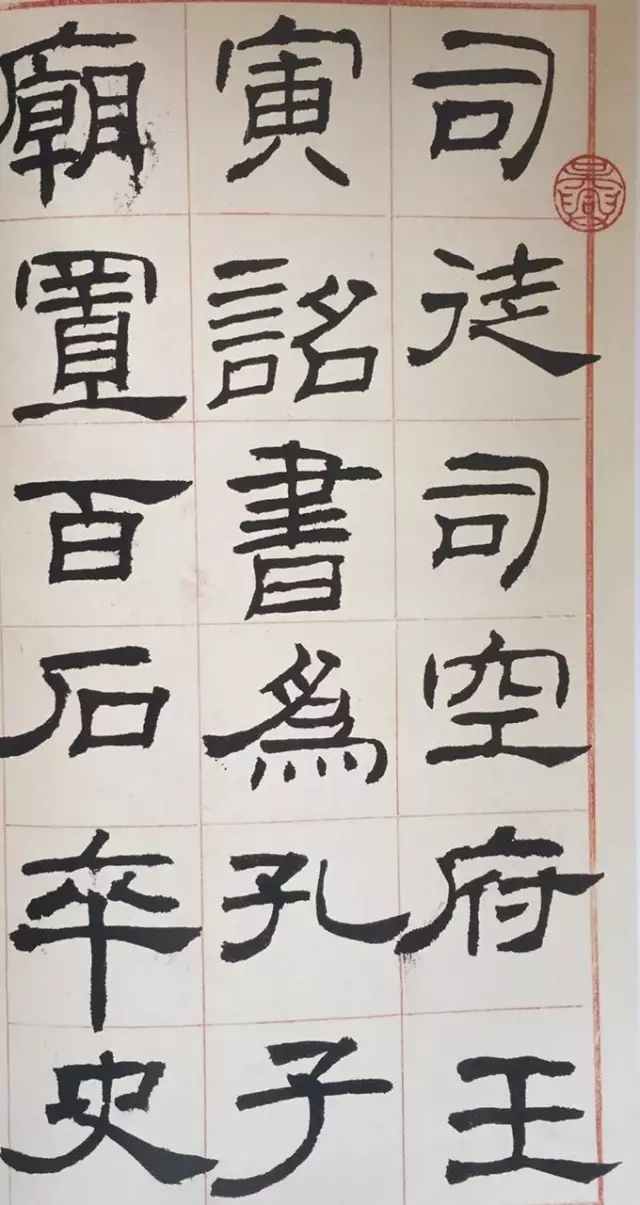 司徒司空府壬
寅詔書爲孔子
廟置百石卒史